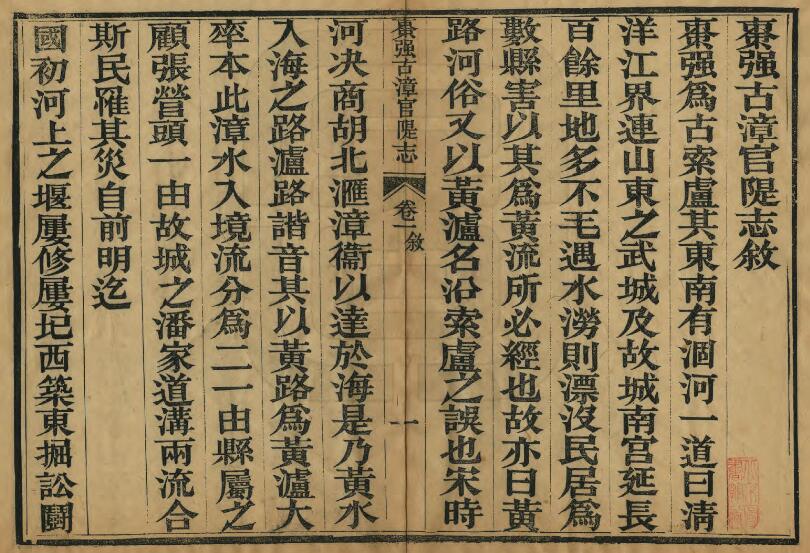 棗强古漳官隄志敘
棗强爲古索盧其東南有涸河一道曰淸
洋江界連山東之武城及故城南宮延長
百餘里地多不毛遇水澇則漂沒民居爲
數縣害以其爲黃流所必經也故亦曰黃
路河俗又以黃瀘名沿索盧之誤也宋時
棗强古漳官隄志
卷一 敘
一
河決商胡北滙漳衞以達於海是乃黃水
入海之路瀘路諧音其以黃路爲黃瀘大
率本此漳水入境流分爲二一由縣屬之
顧張營頭一由故城之潘家道溝兩流合
斯民罹其災自前明迄
國初河上之堰屢修屢圮西築東掘訟鬪